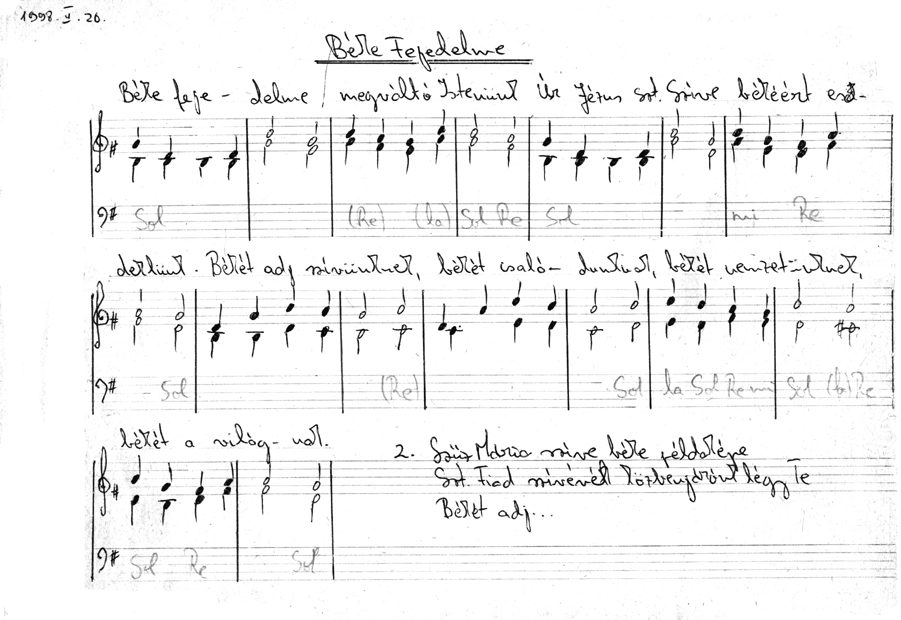 1998. V. 20.
Béke Fejedelme
Béke feje - delme megváltó Istenünk Úr Jézus szt. Szíve békéért esd-
Sol (Re) (la) Sol Re Sol mi Re
deklünk. Békét adj szívünknek, békét csalá- dunknak, békét nemzet-ünknek,
Sol (Re) Sol la Sol Re mi Sol (la) Re
békét a világ-nak.
Sol Re Sol
2. Szűz Mária szíve béke példaképe
Szt. Fiad szívénél közbenjárónk légy Te
Békét adj...